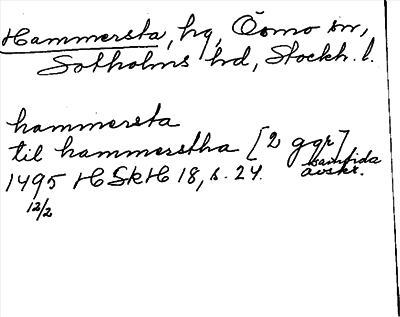 Hammersta, hg, Ösmo sn,
Sotholms hd, Stockh. l.
hammersta
til hammerstha [2 ggr]
1495 HSkH 18, s. 24. samtida
12/2 avskr.